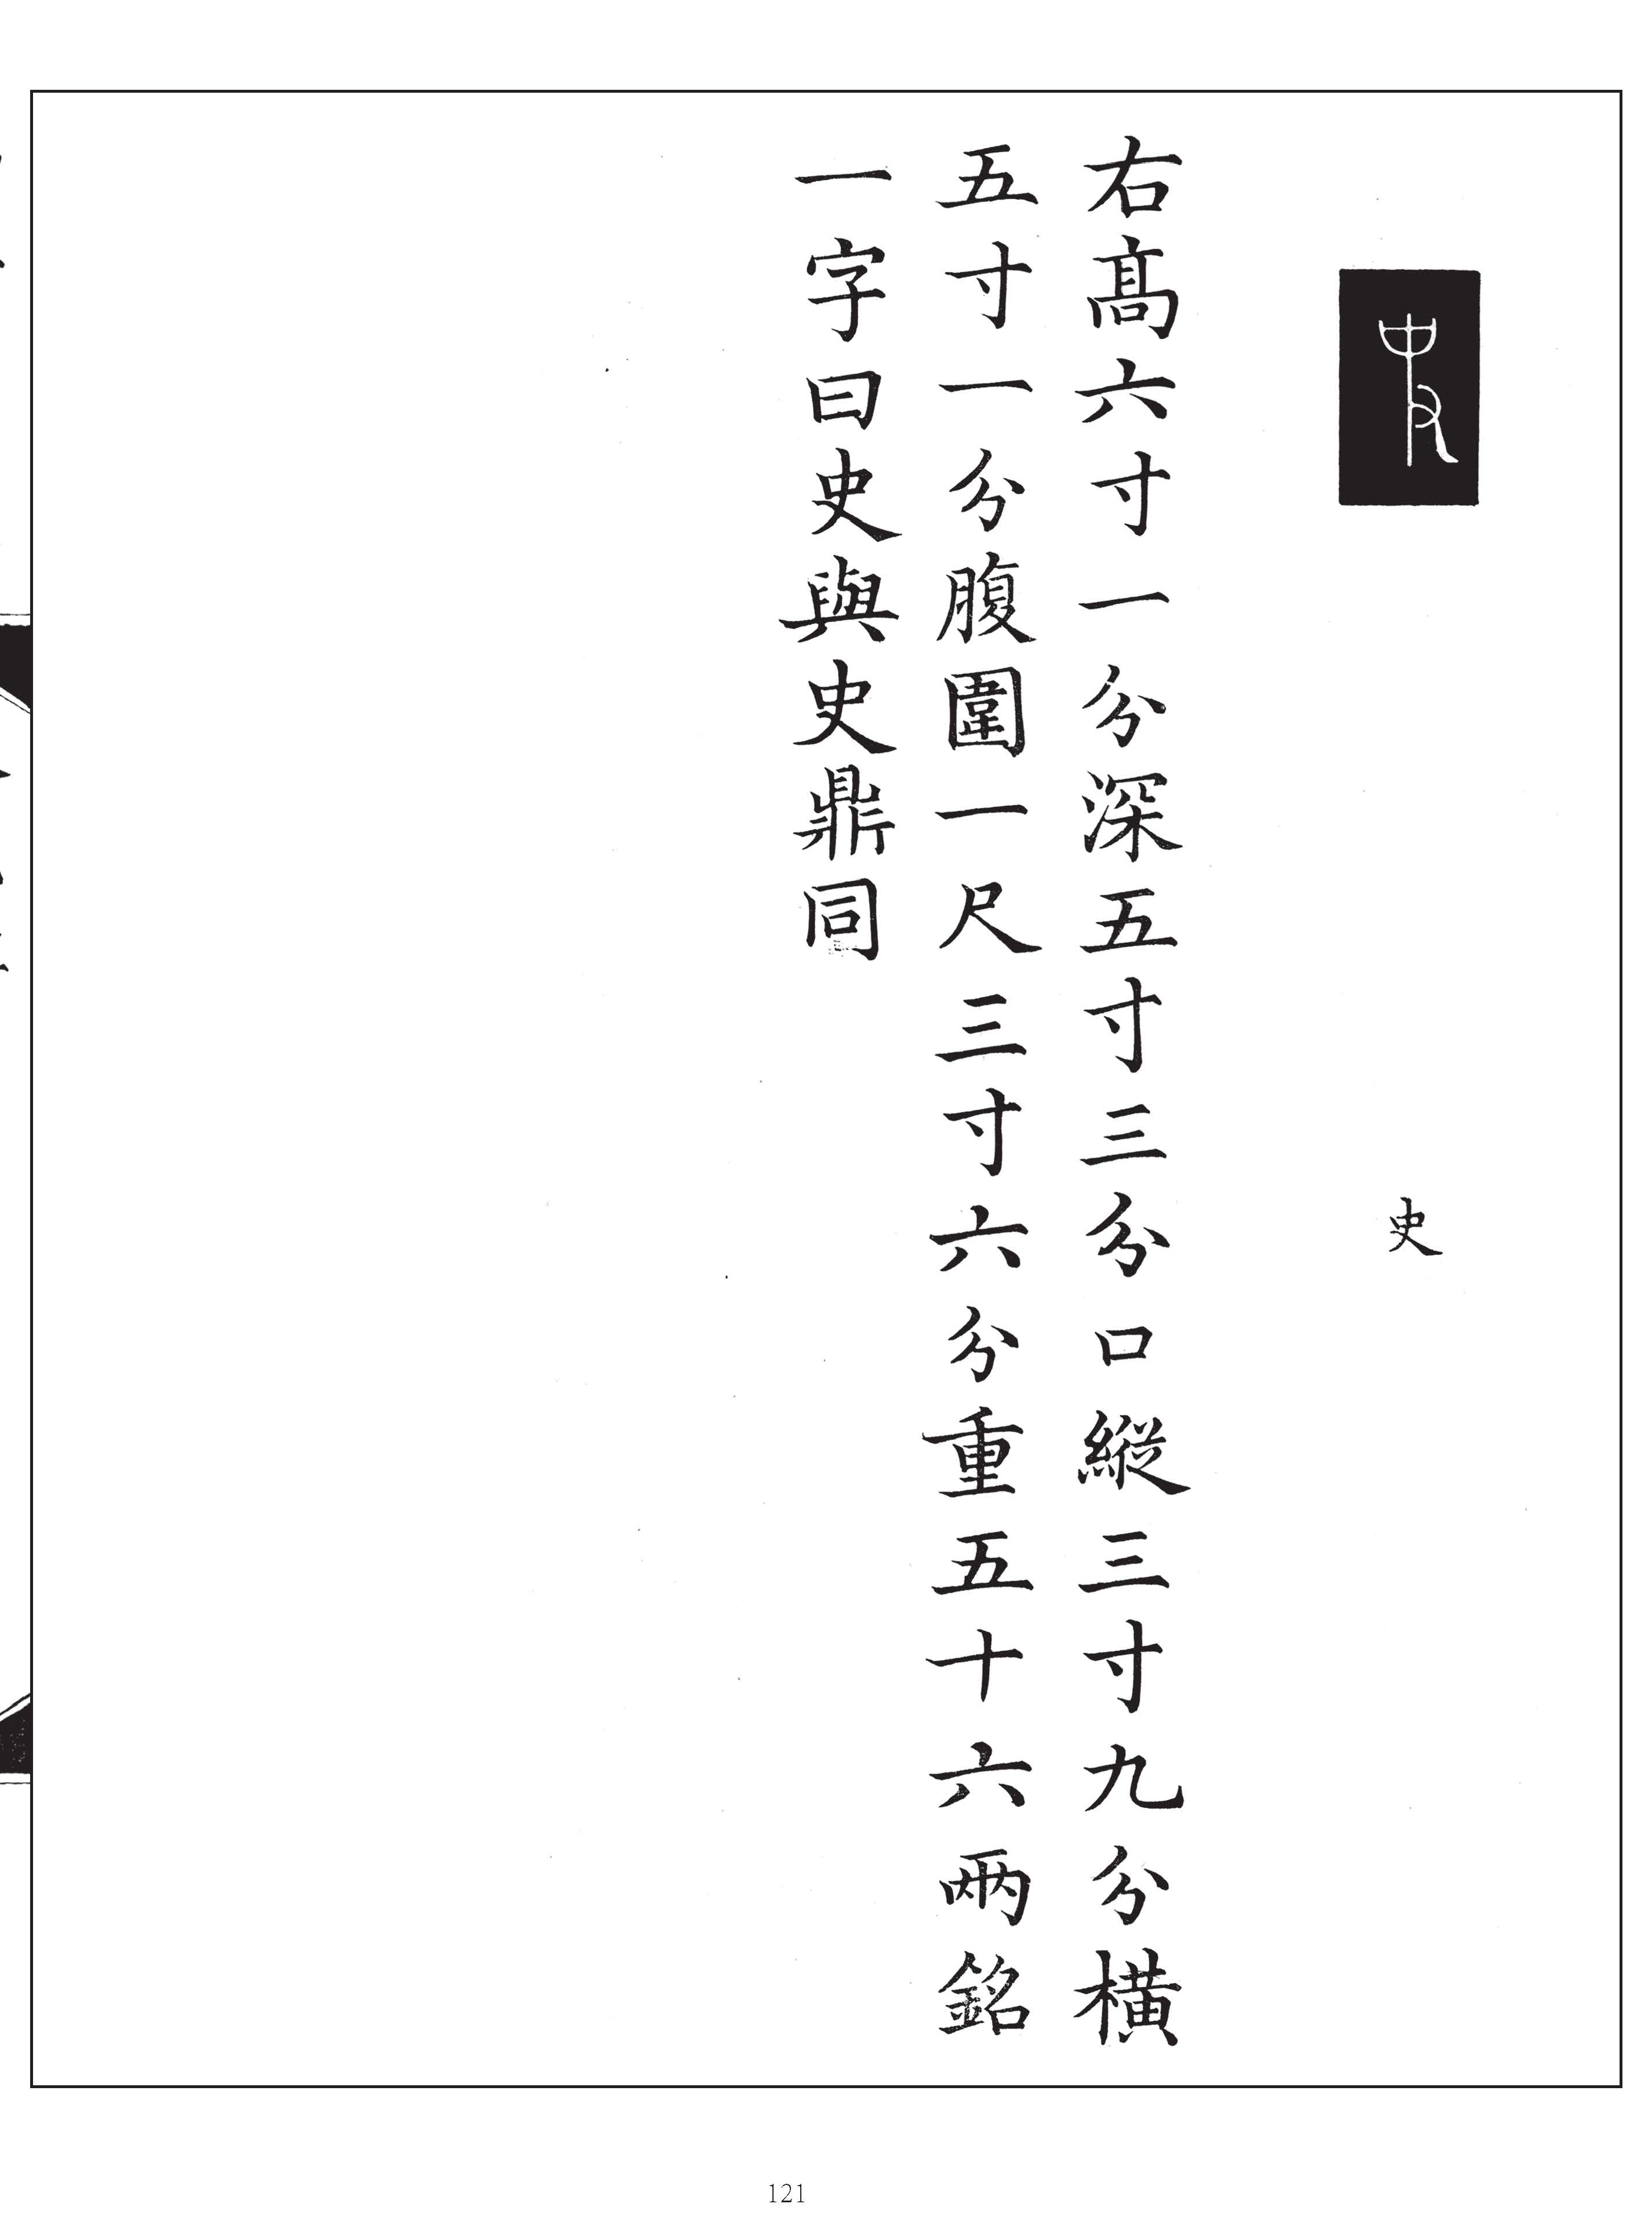 史
史
右髙六寸一分深五寸三分口縱三寸九分橫
五寸一分腹圍一尺三寸六分重五十六兩銘
一字曰史與史鼎同
121